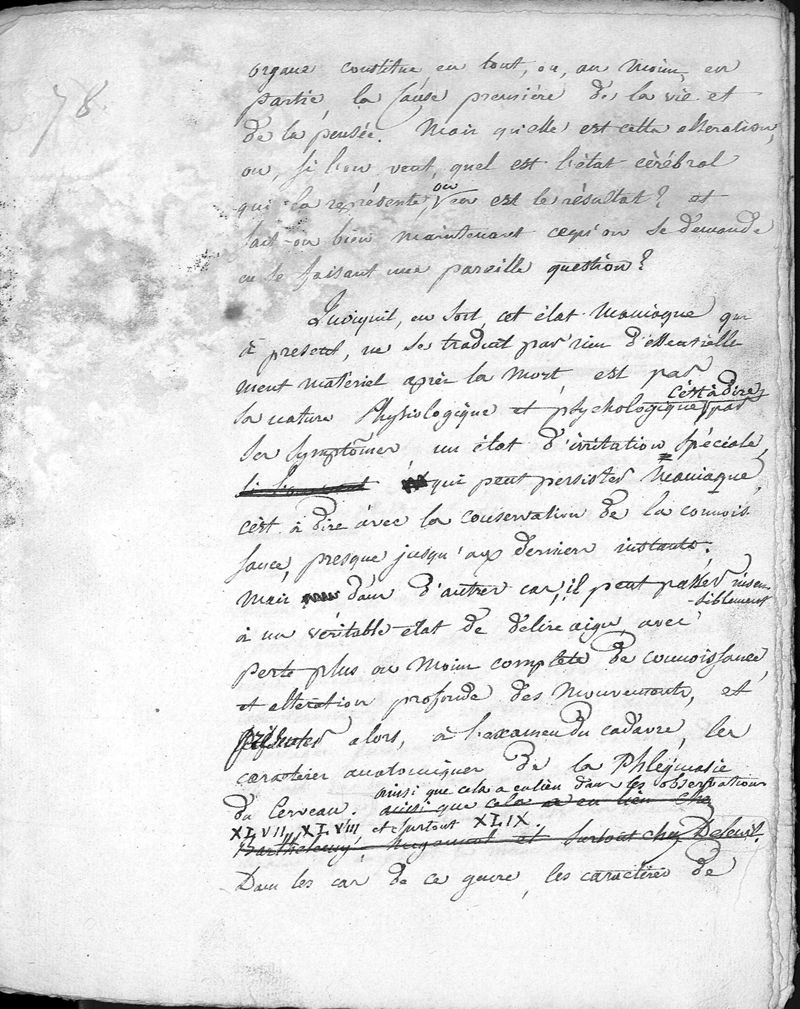 78
organe constitue en tout, ou, au moins, en
partie, la cause première de la vie et
de la pensée. Mais qu'elle est cette alteration,
ou, si l'on veut, quel est l'état cérébral
qui la représente, ou en est le résultat? et
sait-on bien maintenant cequ'on se demande
en se faisant une pareille question?
Quoiquil, en soit, cet état maniaque qui
à present, ne se traduit par rien d'essentielle
ment matériel après la mort, est par
sa nature physiologique et psychologique, c'est à dire par
ses symptômes, un état d'irritation spéciale,
qui peut persister maniaque,
c'est à dire avec la conservation de la connois
sance, presque jusqu'aux derniers instants.
Mais dans d'autres cas, il peut passer insen
-siblement
à un véritable état de délire aigu, avec
perte plus ou moins complete de connoissance,
et alteration profonde des mouvements, et
présenter alors, à l'examen du cadavre, les
caractères anatomiques de la Phlegmasie
du Cerveau. ainsi que cela a eu lieu dans les observations
ainsi que cela a eu lieu chez
XLVII, XLVIII, et surtout XLIX.
Barthelemy, et surtout chez
Dans les cas de ce genre, les caractères de